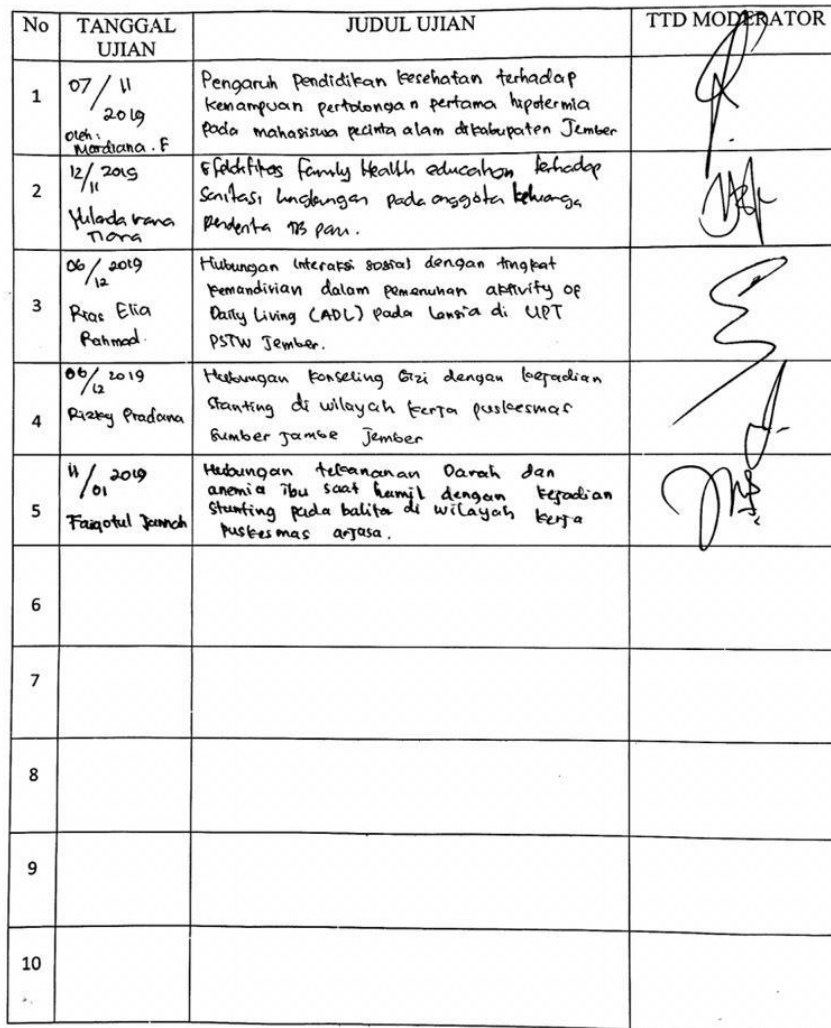 No TANGGAL UJIAN JUDUL UJIAN TTD MODERATOR
1
07/11
2019
oleh:
Mardiana. F
Pengaruh Pendidikan kesehatan terhadap
kemampuan pertolongan pertama hipotermia
pada mahasiswa pecinta alam dikabupaten Jember
2
12/11 2019
Yulada
Efektifitas Family Health education terhadap
Sanitasi lingkungan pada anggota keluarga
Penderita TB paru.
3
06/12 2019
Elia
Rahmad.
Hubungan interaksi sosial dengan tingkat
kemandirian dalam pemenuhan aktivity of
Daily Living (ADL) pada Lansia di UPT
PSTW Jember.
4
06/12 2019
Rizky Pradana
Hubungan konseling Gizi dengan kejadian
Stanting di wilayah kerja puskesmas
Sumber Jambe Jember
5
11/01 2019
Faiqotul Jannah
Hubungan tekananan Darah dan
anemia ibu saat hamil dengan kejadian
Stunting pada balita di wilayah kerja
Puskesmas arjasa.
6
7
8
9
10